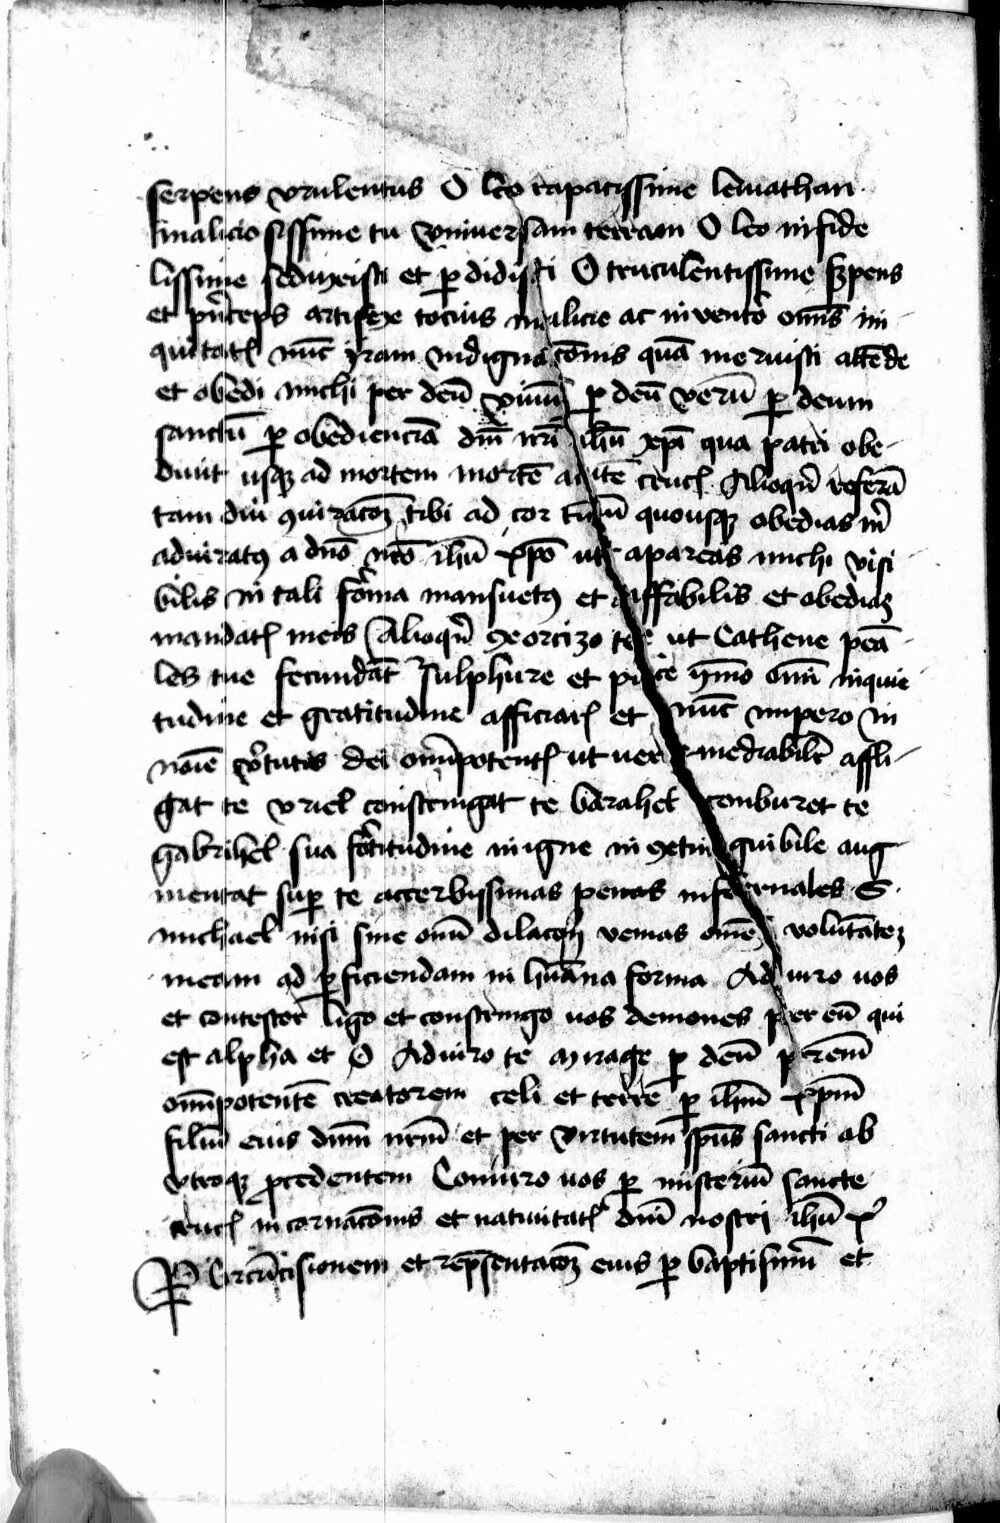 serpens virulentus O leo rapacissime leuiathan
maliciosissime tu vniuersam terram O leo infide
lissime seduxisti et perdidisti O truculentissime serpens
et p͛nceps artifex tocius malicie ac inuentor om̄s ini
quitatꝭ nūc iram indignac̄onis quā meruisti attēde
et obedi michi per deū viuū ꝑ deū verū ꝑ deum
sanctū ꝑ obedienciā dn̄i nr̄i ih̄u xp̄i qua patri obe-
diuit usqꝫ ad mortem mortē autē crucꝭ Alioqn̄ referā
tam diu ꝯiurac̄oꝫ tibi ad cor tuū quousqꝫ obedias m̄
adiuratꝰ a dn̄o nr̄o ih̄u xp̄o ut apareas michi visi
bilis in tali forma mansuetꝰ et affabilis et obedias
mandatꝭ meis Alioqn̄ exorcizo te ut Cathene penā-
les tue fecundāt sulphure et pice ymo om̄i inquie
tudine et gratitudine afficiatꝭ et nūc impero in
noīe virtutis dei om̄ipotentꝭ ut mediabilē affli-
gat te vriel constringat te barahel comburet te
gabrihel sua fortitudine in igne in extinguibile aug
mentat suꝑ te accerbissimas penas infernales S
michael nisi sine om̄i dilac̄oꝫ venias om̄ē volūtateꝫ
meam ad ꝑficiendam in hūana forma Adiuro uos
et contestor ligo et constringo uos demones per eū qui
est alpha et O Adiuro te mirage ꝑ deū prem̄
om̄ipotentē creatorem celi et terre ꝑ ih̄um xp̄m
filiū eius dn̄m nr̄m et per virtutem sp̄us sancti ab
vtroqꝫ procedentem Coniuro uos ꝑ misteriū sancte
crucꝭ incarnac̄onis et natiuitatꝭ dn̄i nostri ih̄u x͛
P Circūcisionem et rep̄sentac̄oꝫ eius ꝑ baptismū et